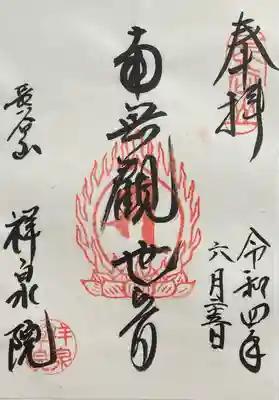 奉拝
令和四年
六月吉日
南無觀世音
長谷山
祥泉院